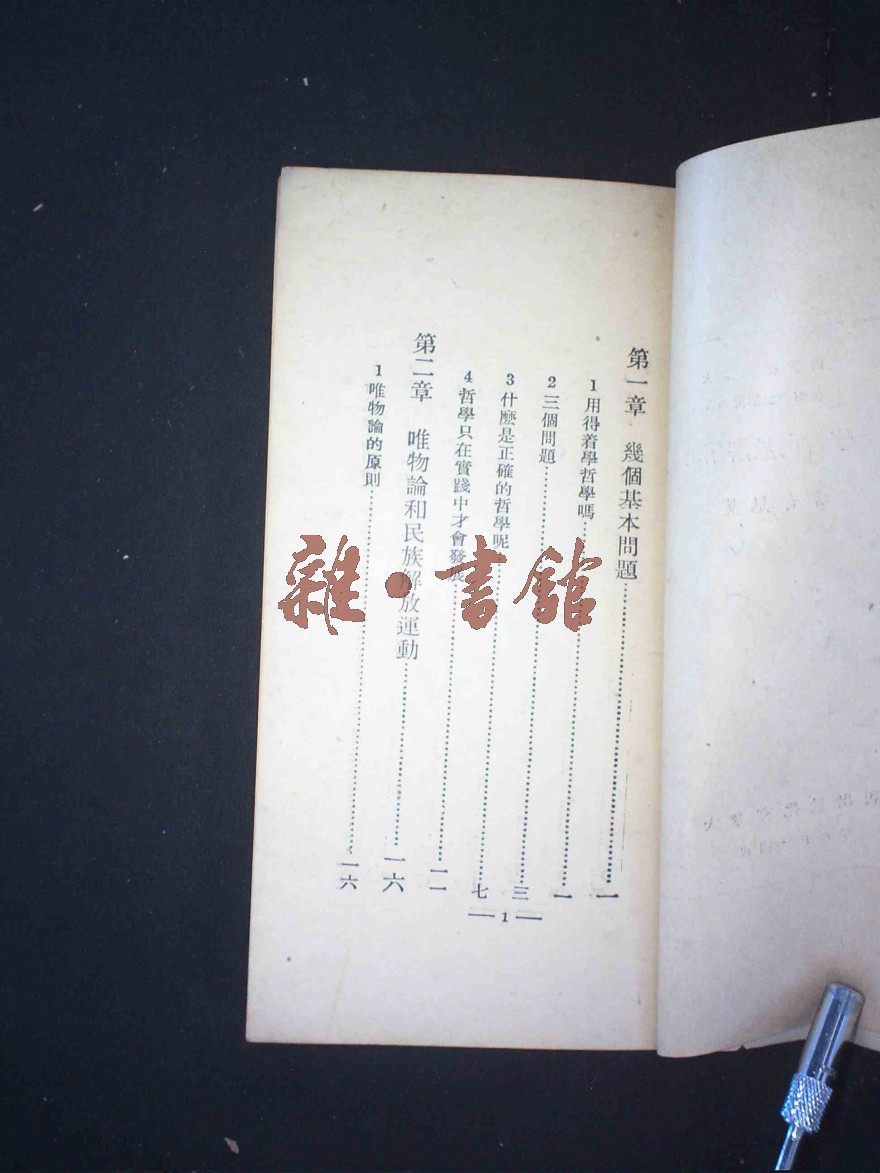 第一章 幾個基本問題……一
1 用得着學哲學嗎……一
2 三個問題……三
3 什麽是正確的哲學呢……七
4 哲學只在實踐中才會發展……一一
第二章 唯物論和民族解放運動……一六
1 唯物論的原則……一六
— 1 —
雜·書館